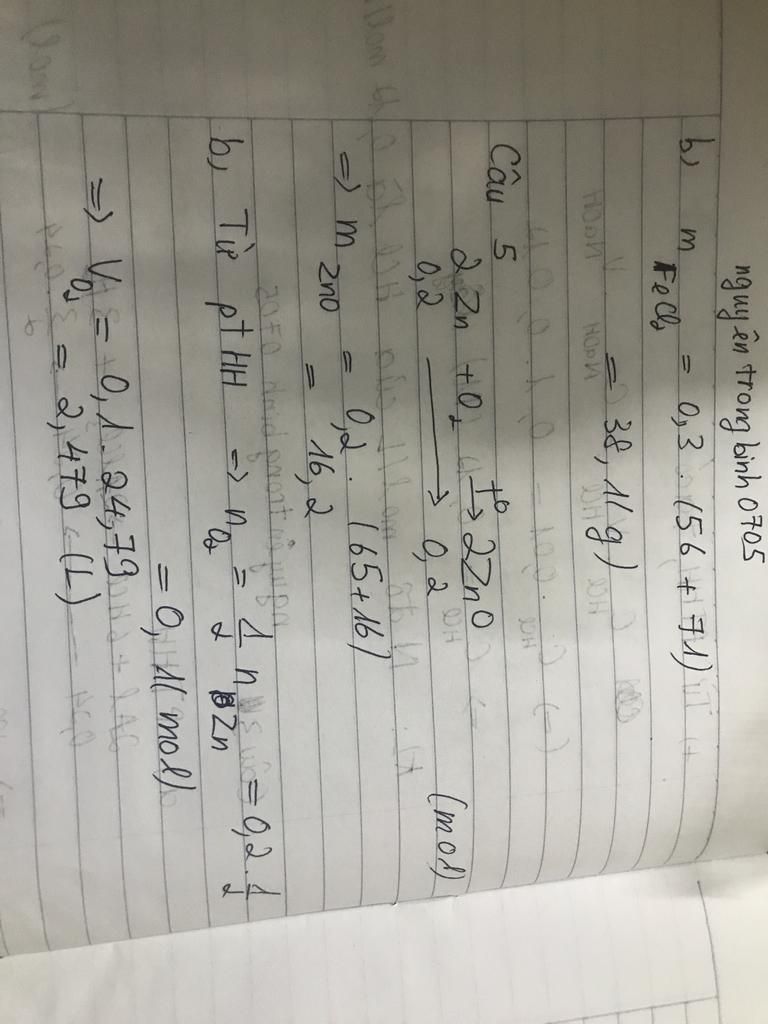 nguyên trong binh 0705
b, m FeCl₂ = 0,3 . (56 + 71)
= 38,1(g)
Câu 5
2Zn + O₂ t⁰→ 2ZnO
0,2 → 0,2 (mol)
=> m ZnO = 0,2 . (65+16)
= 16,2
b, Từ ptHH => n O₂ = 1/2 n Zn = 0,2 . 1/2
= 0,1(mol)
=> V O₂ = 0,1 . 24,79
= 2,479 (L)